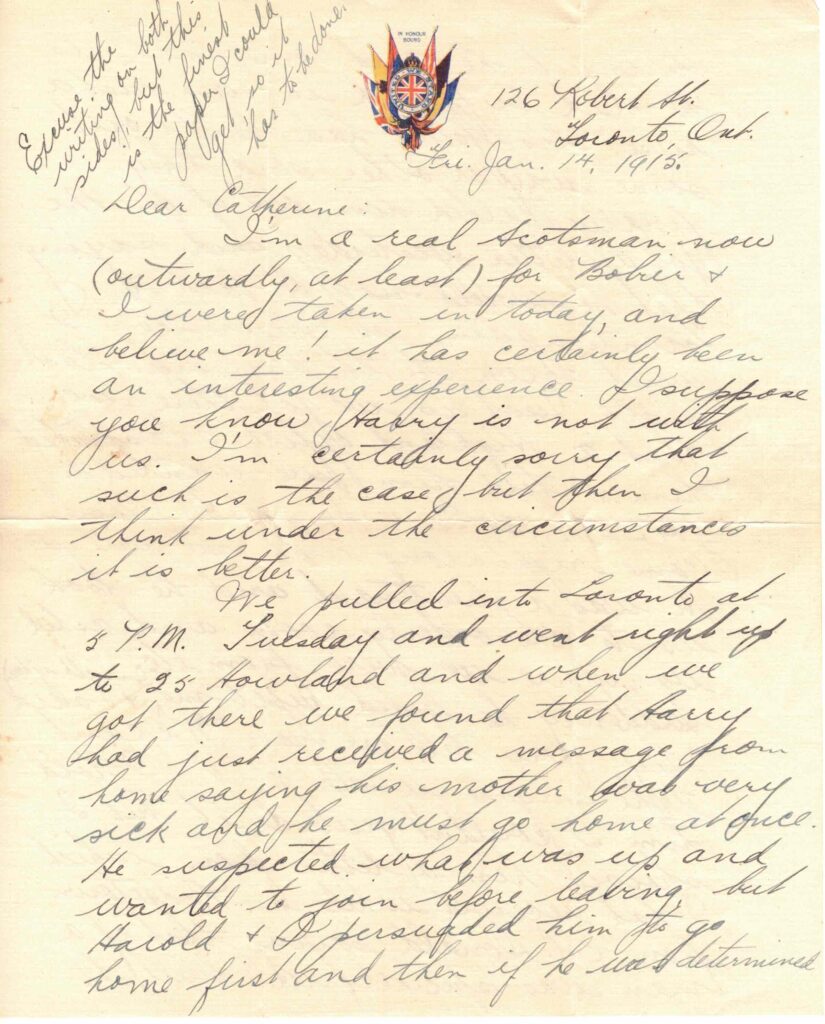 Excuse the
writing on both
sides, but this
is the finest
paper I could
get so it
has to be done.
IN HONOUR
BOUND
126 Robert St.
Toronto, Ont.
Fri. Jan. 14, 1915.
Dear Catherine:
I'm a real Scotsman now
(outwardly, at least) for &
I were taken in today, and
believe me! it has certainly been
an interesting experience. I suppose
you know Harry is not with
us. I'm certainly sorry that
such is the case, but then I
think under the circumstances
it is better.
We pulled into Toronto at
5 P.M. Tuesday and went right up
to 25 Howland and when we
got there we found that Harry
had just received a message from
home saying his mother was very
sick and he must go home at once.
He suspected what was up and
wanted to join before leaving, but
Harold & I persuaded him to go
home first and then if he was determined